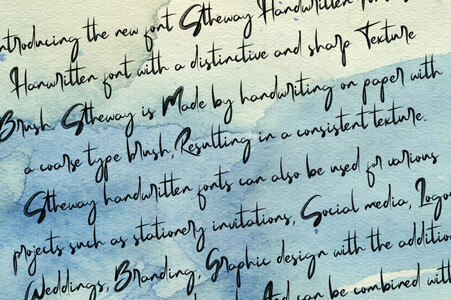 ntroducing the new font Stheway Handwritten
Hanwritten font with a distinctive and sharp Texture
Brush Stheway is Made by handwriting on paper with
a coarse type brush, Resulting in a consistent texture.
Stheway handwritten fonts can also be used for various
projects such as stationery invitations, Social media, Logo
Weddings, Branding, Graphic design with the addition
And can be combined with